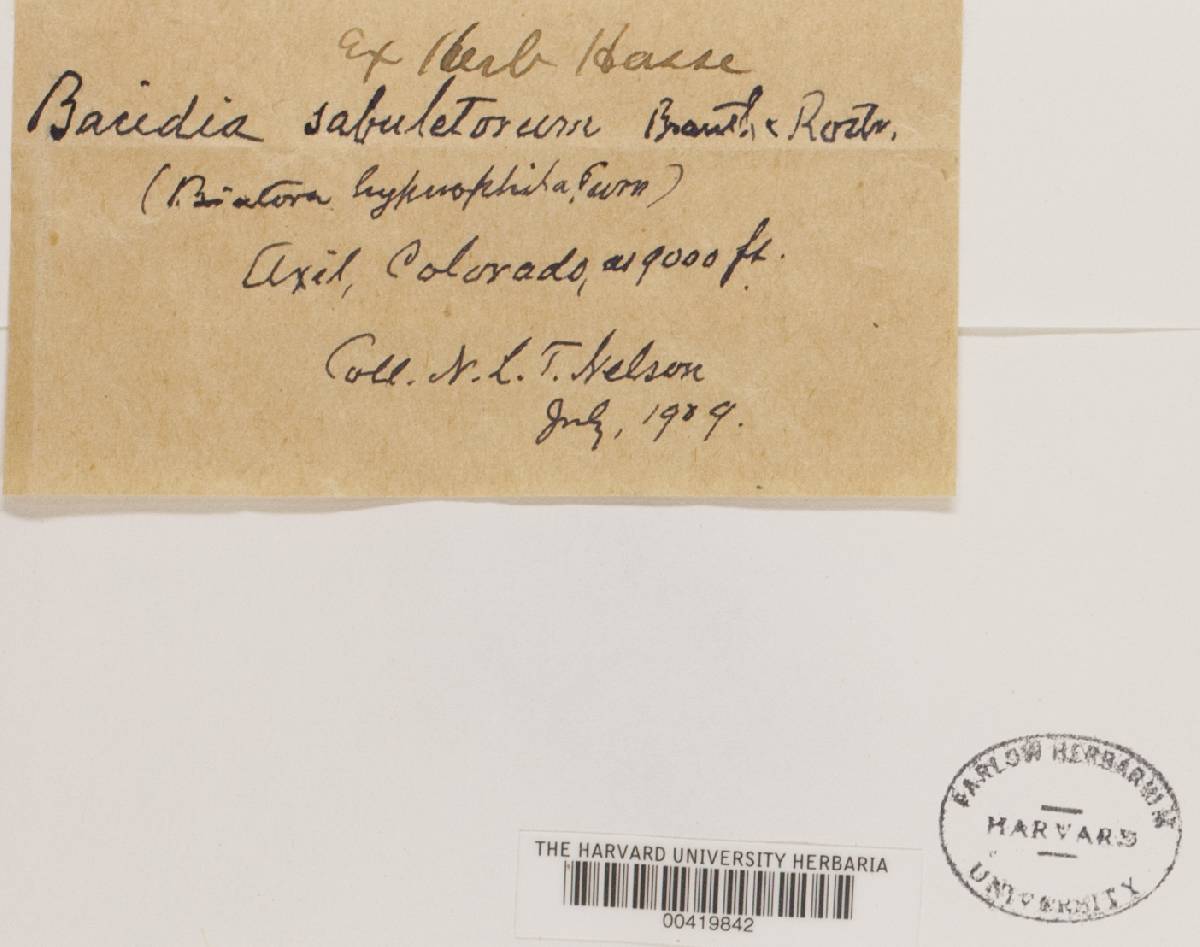 Ex Herb Hasse
Bacidia sabuletorum Branth & Rostr.
(Biatora hypnophila, Turn)
Axil, Colorado, at 9000 ft.
Coll. N. L. T. Nelson
July, 1909.
FARLOW HERBARIUM
HARVARD
UNIVERSITY
THE HARVARD UNIVERSITY HERBARIA
00419842